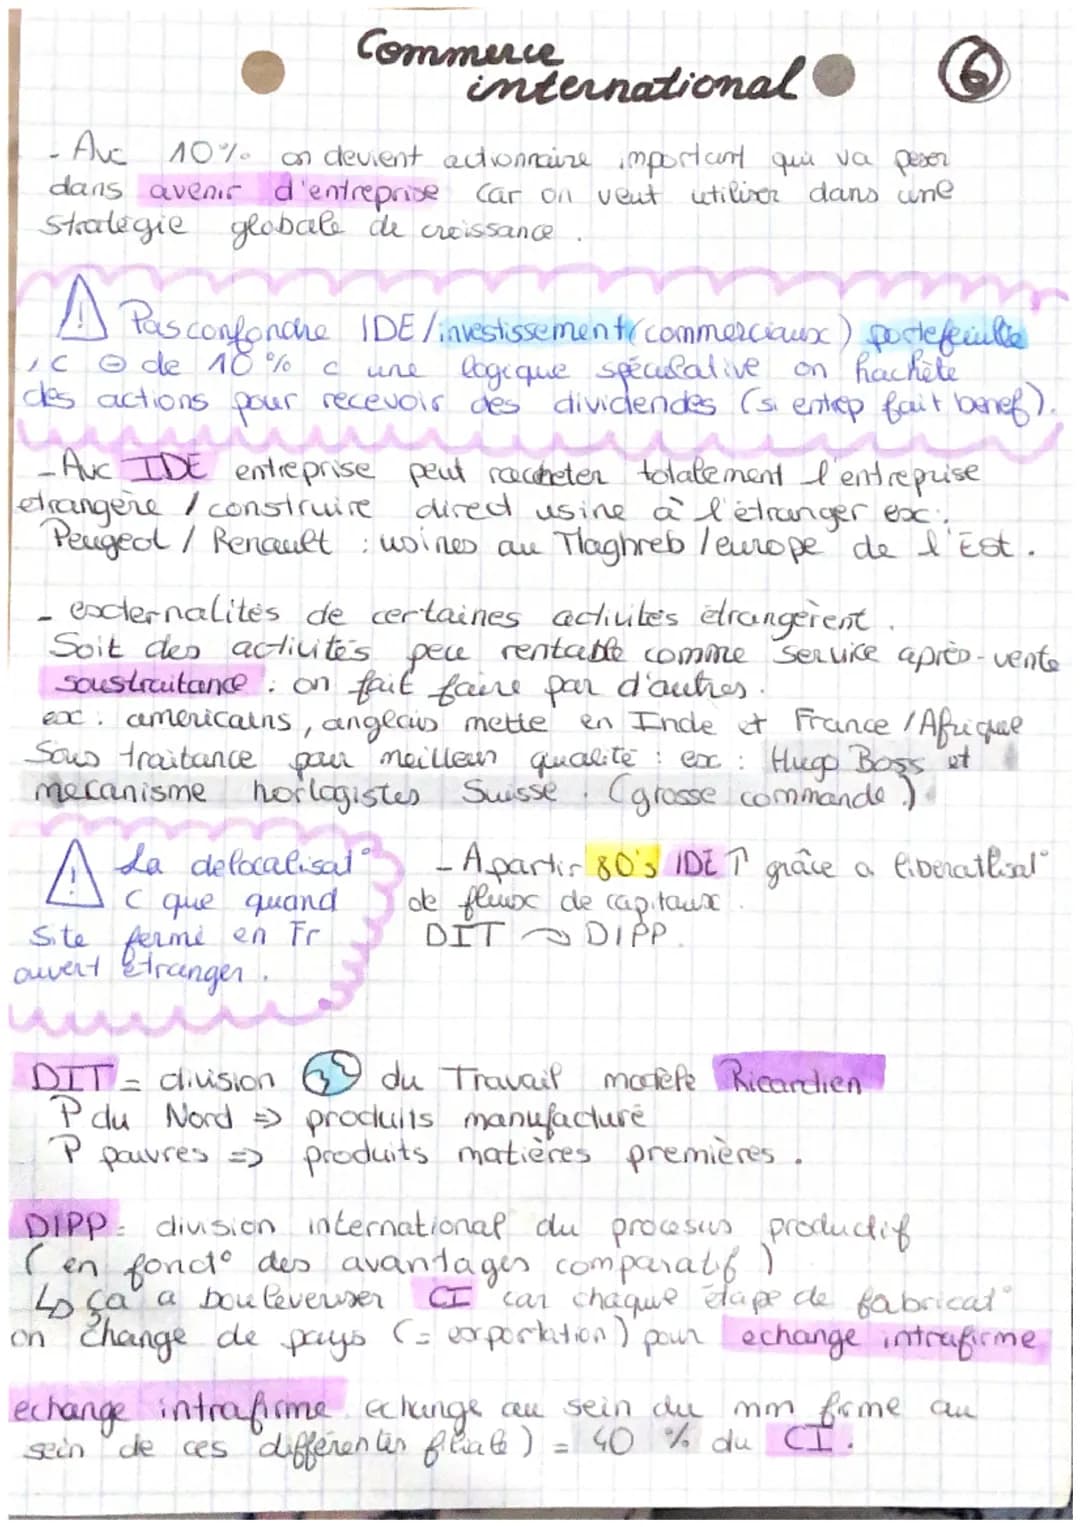 Commerce
international
6
- Avc 10% on devient actionnaire important qui va peser
dans avenir d'entreprise car on veut utiliser dans une
stratégie globale de croissance.
Pas confondre IDE / investissement (commerciaux) portefeuille
, c ⊖ de 10% c une logique spéculative on rachète
des actions pour recevoir des dividendes (si entrep fait benef).
- Avc IDE entreprise peut racheter totalement l'entreprise
etrangère / construire direct usine à l'étranger ex:
Peugeot / Renault : usines au Maghreb / europe de l'Est.
- externalités de certaines activités étrangèrent.
Soit des activités peu rentable comme service après-vente
soustraitance : on fait faire par d'autres.
ex : americains, anglais mette en Inde et France / Afrique
Sous traitance pour meilleur qualité : ex : Hugo Boss et
mecanisme horlogistes Suisse. (grosse commande.)
La delocalisat°
c que quand
Site fermé en Fr
ouvert étranger.
- A partir 80's IDE ↑ grâce a liberathisat°
de fluxc de capitaux.
DIT → DIPP.
DIT = division du Travail modèle Ricardien
P du Nord => produits manufacturé
P pauvres => produits matières premières.
DIPP = division international du procesus productif
(en fonct° des avantages comparatif)
↳ ça a bouleverser CI car chaque étape de fabricat°
on change de pays (= exportation) pour echange intrafirme
echange intrafirme echange au sein du mm firme au
sein de ces différentes filiale) = 40 % du CI.